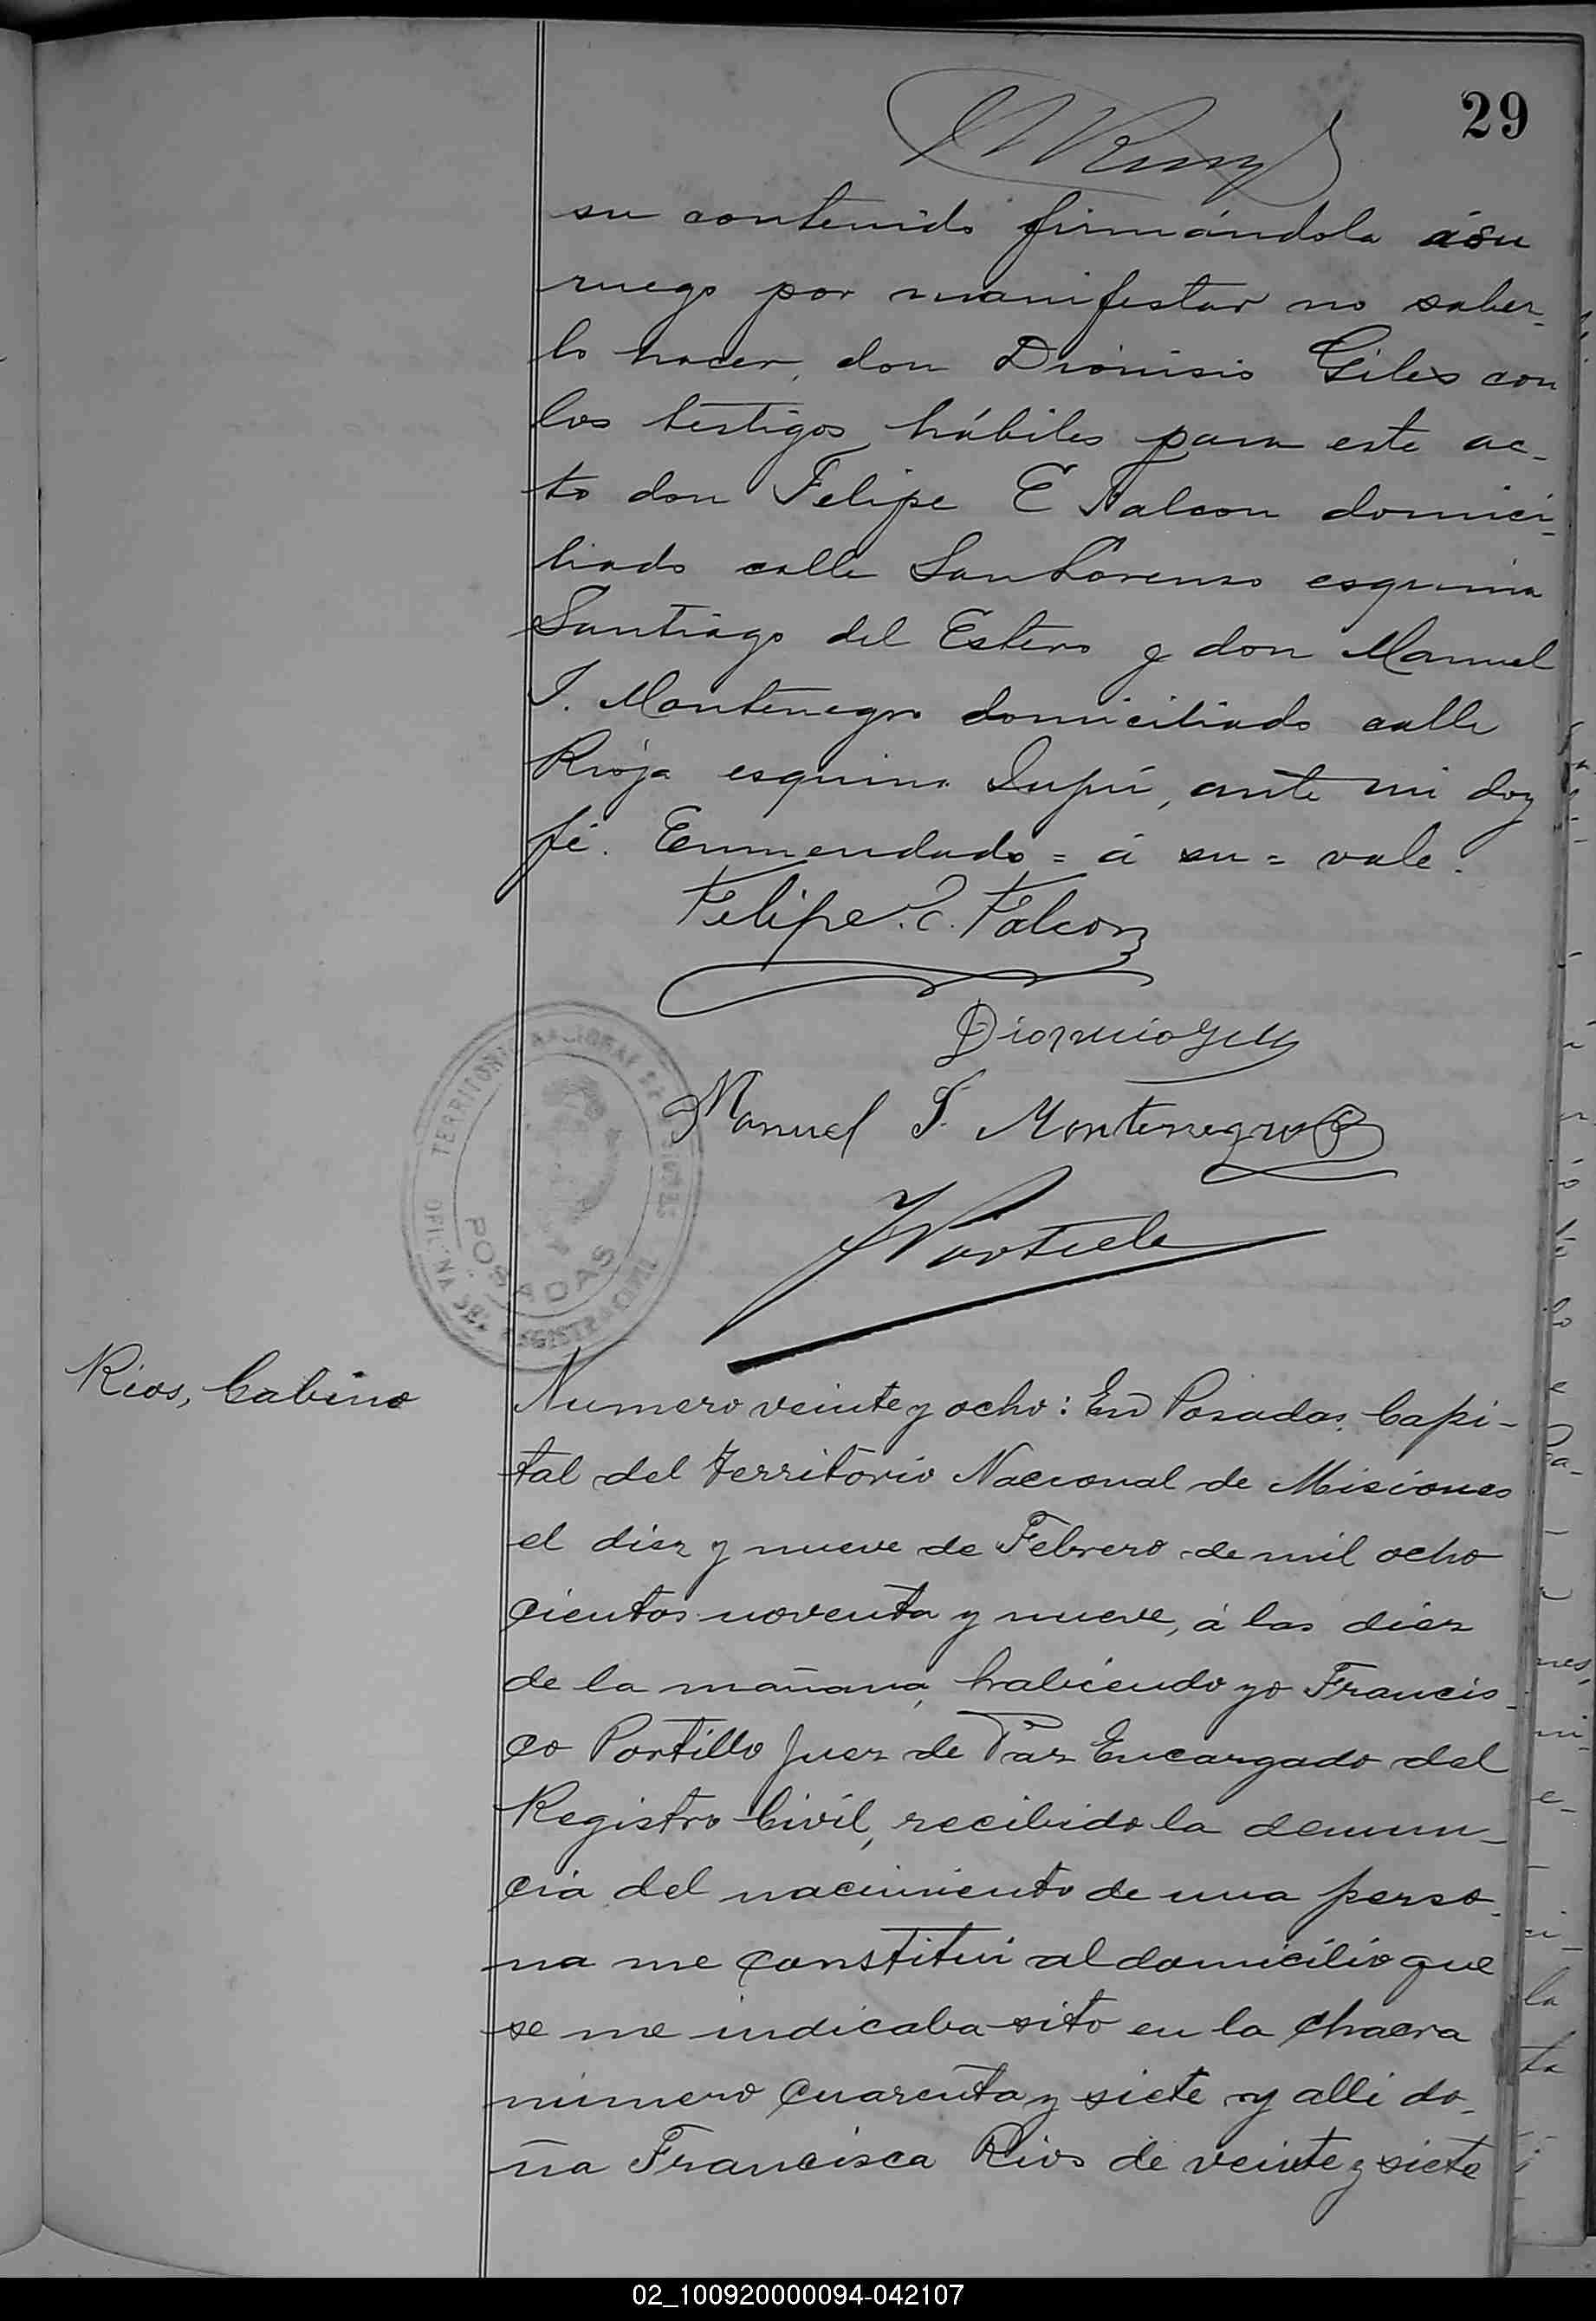 29
su contenido firmándola ásu
ruego por manifestar no saber-
lo hacer, don Dionisio Giles con
los testigos hábiles para este ac-
to don Felipe E Falcon domici-
liado calle San Lorenso esquina
Santiago del Estero y don Manuel
S. Montenegro domiciliado calle
Rioja esquina, ante mi doy
fé. Enmendado = á su = vale.
Felipe E. Falcon
Manuel S. Montenegro
TERRITORIO NACIONAL DE MISIONES
POSADAS
OFICINA DEL REGISTRO CIVIL
Rios, Gabino
Numero veinte y ocho: En Posadas, Capi-
tal del Territorio Nacional de Misiones
el diez y nueve de Febrero de mil ocho
cientos noventa y nueve, á las diez
de la mañana, habiendo yo Francis-
co Portillo Juez de Paz Encargado del
Registro Civil, recibido la denun-
cia del nacimiento de una perso-
na me constitui al domicilio que
se me indicaba sito en la chacra
número cuarenta y siete y alli do-
ña Francisca Rios de veinte y siete
02_100920000094-042107